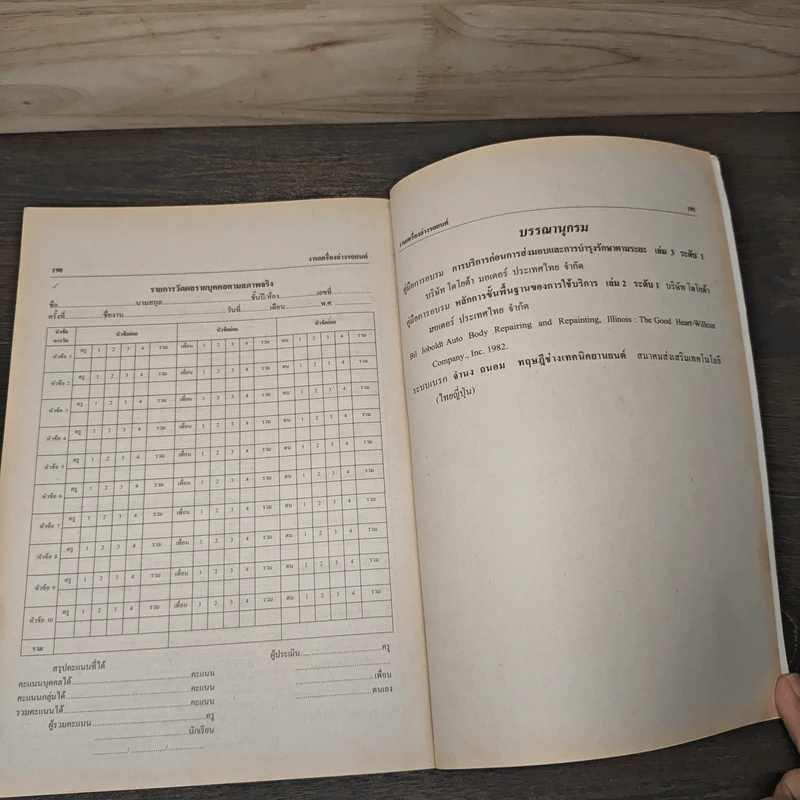 190
งานเครื่องล่างรถยนต์
รายการวัดผลรายบุคคลตามสภาพจริง
ชื่อ..........นามสกุล..........ชั้นปี/ห้อง..........เลขที่..........
ครั้งที่..........ชื่องาน..........วันที่..........เดือน..........พ.ศ..........
หัวข้อการวัด หัวข้อย่อย หัวข้อย่อย หัวข้อย่อย
หัวข้อ 1 ครู 1 2 3 4 รวม เพื่อน 1 2 3 4 รวม ตน 1 2 3 4 รวม
หัวข้อ 2 ครู 1 2 3 4 รวม เพื่อน 1 2 3 4 รวม ตน 1 2 3 4 รวม
หัวข้อ 3 ครู 1 2 3 4 รวม เพื่อน 1 2 3 4 รวม ตน 1 2 3 4 รวม
หัวข้อ 4 ครู 1 2 3 4 รวม เพื่อน 1 2 3 4 รวม ตน 1 2 3 4 รวม
หัวข้อ 5 ครู 1 2 3 4 รวม เพื่อน 1 2 3 4 รวม ตน 1 2 3 4 รวม
หัวข้อ 6 ครู 1 2 3 4 รวม เพื่อน 1 2 3 4 รวม ตน 1 2 3 4 รวม
หัวข้อ 7 ครู 1 2 3 4 รวม เพื่อน 1 2 3 4 รวม ตน 1 2 3 4 รวม
หัวข้อ 8 ครู 1 2 3 4 รวม เพื่อน 1 2 3 4 รวม ตน 1 2 3 4 รวม
หัวข้อ 9 ครู 1 2 3 4 รวม เพื่อน 1 2 3 4 รวม ตน 1 2 3 4 รวม
หัวข้อ 10 ครู 1 2 3 4 รวม เพื่อน 1 2 3 4 รวม ตน 1 2 3 4 รวม
รวม
สรุปคะแนนที่ได้
คะแนนบุคคลได้..........คะแนน
คะแนนกลุ่มได้..........คะแนน
รวมคะแนนได้..........คะแนน
ผู้รวมคะแนน..........ครู
..........นักเรียน
........../........../..........
ผู้ประเมิน..........ครู
..........เพื่อน
..........ตนเอง
งานเครื่องล่างรถยนต์
191
บรรณานุกรม
คู่มือการอบรม การบริการก่อนการส่งมอบและการบำรุงรักษาตามระยะ เล่ม 3 ระดับ 1
บริษัท โตโยต้า มอเตอร์ ประเทศไทย จำกัด
คู่มือการอบรม หลักการขั้นพื้นฐานของการใช้บริการ เล่ม 2 ระดับ 1 บริษัท โตโยต้า
มอเตอร์ ประเทศไทย จำกัด
Bil Joboldt Auto Body Repairing and Repainting, Illinois : The Good Heart-Willcox
Company., Inc. 1982.
ระบบเบรก จำนง ถนอม ทฤษฎีช่างเทคนิคยานยนต์ สมาคมส่งเสริมเทคโนโลยี
(ไทยญี่ปุ่น)